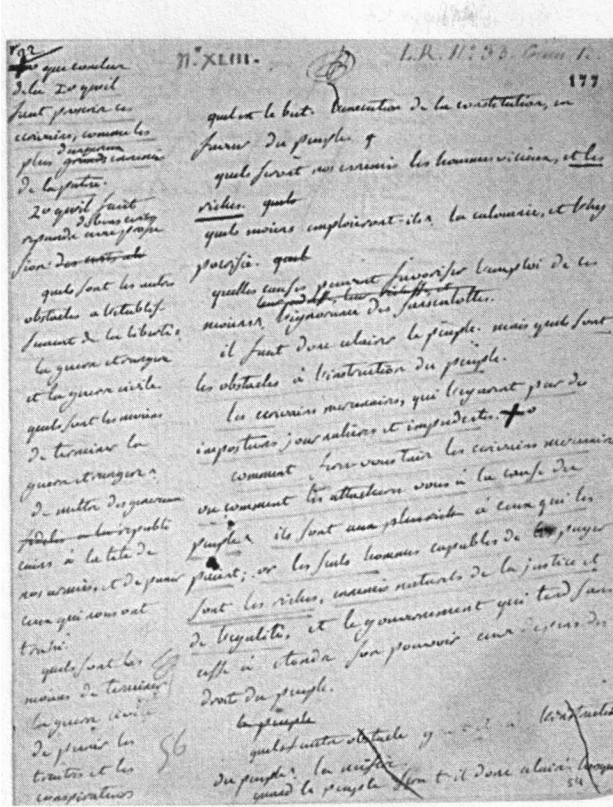 n° XLIII.
177
+ que conclure
de là 1° qu'il
faut proscrire ces
écrivains, comme les
plus dangereux
grands ennemis
de la patrie.
2° qu'il faut
répandre
quels sont les autres
obstacles à l'établis-
sement de la liberté?
la guerre étrangère
et la guerre civile.
quels sont les moiens
de terminer la
guerre étrangère?
de mettre des généraux
républi
cains à la tête de
nos armées, et de punir
ceux qui nous ont
trahi.
quels sont les
moiens de terminer
la guerre civile
de punir les
traitres et les
conspirateurs
56
quel est le but. l'exécution de la constitution, en
faveur du peuple
quels seront nos ennemis les hommes vicieux, et les
riches. quels
quels moiens emploieront-ils? la calomnie, et l'hy
pocrisie. quels
quelles causes peuvent favoriser l'emploi de ces
moiens? l'ignorance des sansculottes.
il faut donc éclairer le peuple. mais quels sont
les obstacles à l'instruction du peuple.
les écrivains mercenaires, qui l'égarent par des
impostures journalières et impudentes. +
comment ferez vous taire les écrivains mercenaires
ou comment les attacherez vous à la cause du
peuple? ils sont
paient; or les seuls hommes capables de les payer
sont les riches, ennemis naturels de la justice et
de l'égalité, et le gouvernement qui tend sans
cesse à étendre son pouvoir aux dépens des
droit du peuple.
le peuple
quel autre obstacle y a t'il à l'instruction
du peuple? la misère
quand le peuple sera t'il donc éclairé?
54